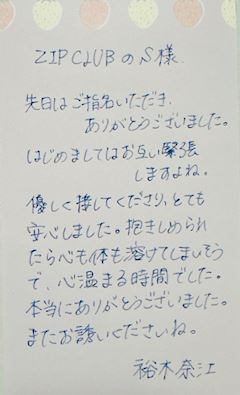 ZIP CLUBのS様
先日はご指名いただき、
ありがとうございました。
はじめましてはお互い緊張
しますよね。
優しく接してくださり、とても
安心しました。抱きしめられ
たら心も体も溶けてしまいそう
で、心温まる時間でした。
本当にありがとうございました。
またお誘いくださいね。
裕木奈江